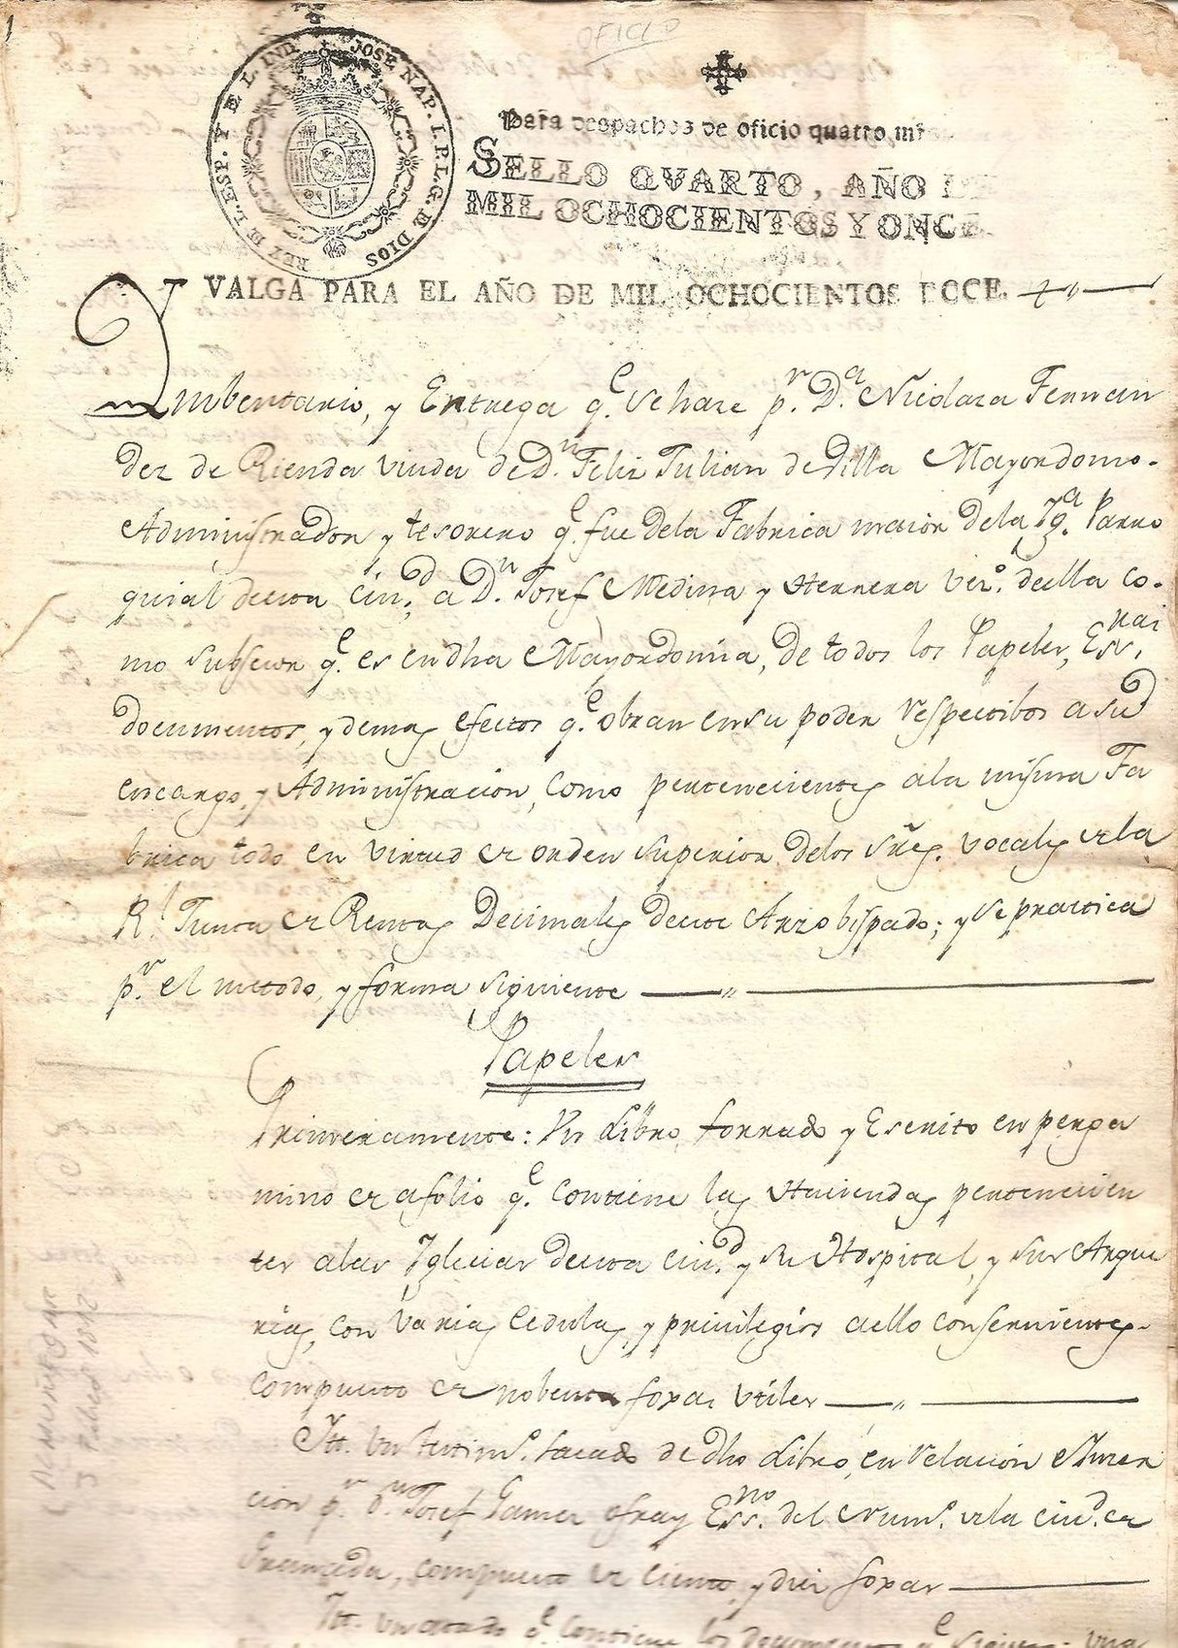 1
OFICIO
JOSE NAP. I. P. L. G. D. DIOS REY D. L. ESP. Y E L. IND.
Para despachos de oficio quatro mrs
SELLO QVARTO, AÑO DE
MIL OCHOCIENTOS Y ONCE
VALGA PARA EL AÑO DE MIL OCHOCIENTOS DOCE.
Ymbentario, y Entrega q.e se hace p.r D.a Nicolasa Fernan
dez de Rienda viuda de D.n Felix Julian de Villa Mayordomo.
Administrador y tesorero q.e fue dela Fabrica maior dela Yg.a Parro
quial de esta ciu.d a D.n Josef Medina y Herrera vez.o de ella co-
mo subsesor q.e es en dha Mayordomia, de todos los Papeles, Ess.ras,
documentos, y demas efectos q.e obran en su poder respectibos a su
encargo, y Administracion, como pertenecientes ala misma Fa
brica todo en virtud de orden superior delos Sres. vocales de la
R.l Junta de Rentas Decimales de este Arzobispado; y se practica
p.r el metodo, y forma siguiente
Papeles
Primeramente: Un Libro, forrado y Escrito en perga
mino de a folio q.e contiene las Haciendas pertenecien
tes alas Iglecias de esta ciu.d y su Hospital, y sus Alque
rias, con varias cedulas, y privilegios a ello conserniente,-
compuesto de nobenta foxas utiles
Itt. un testim.o sacado de dho Libro, en relacion e Incer
cion p.r D.n Josef Gamez Ess.no del Num.o de la ciu.d de
Granada, compuesto de ciento, y diez foxas
Itt. un atado q.e contiene los documentos q.e siguen: una
ALMUÑECAR
1812